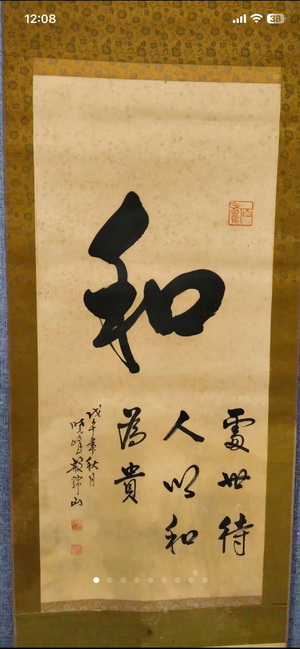 12:08
38
和
處世待
人以和
為貴
戊午年秋月